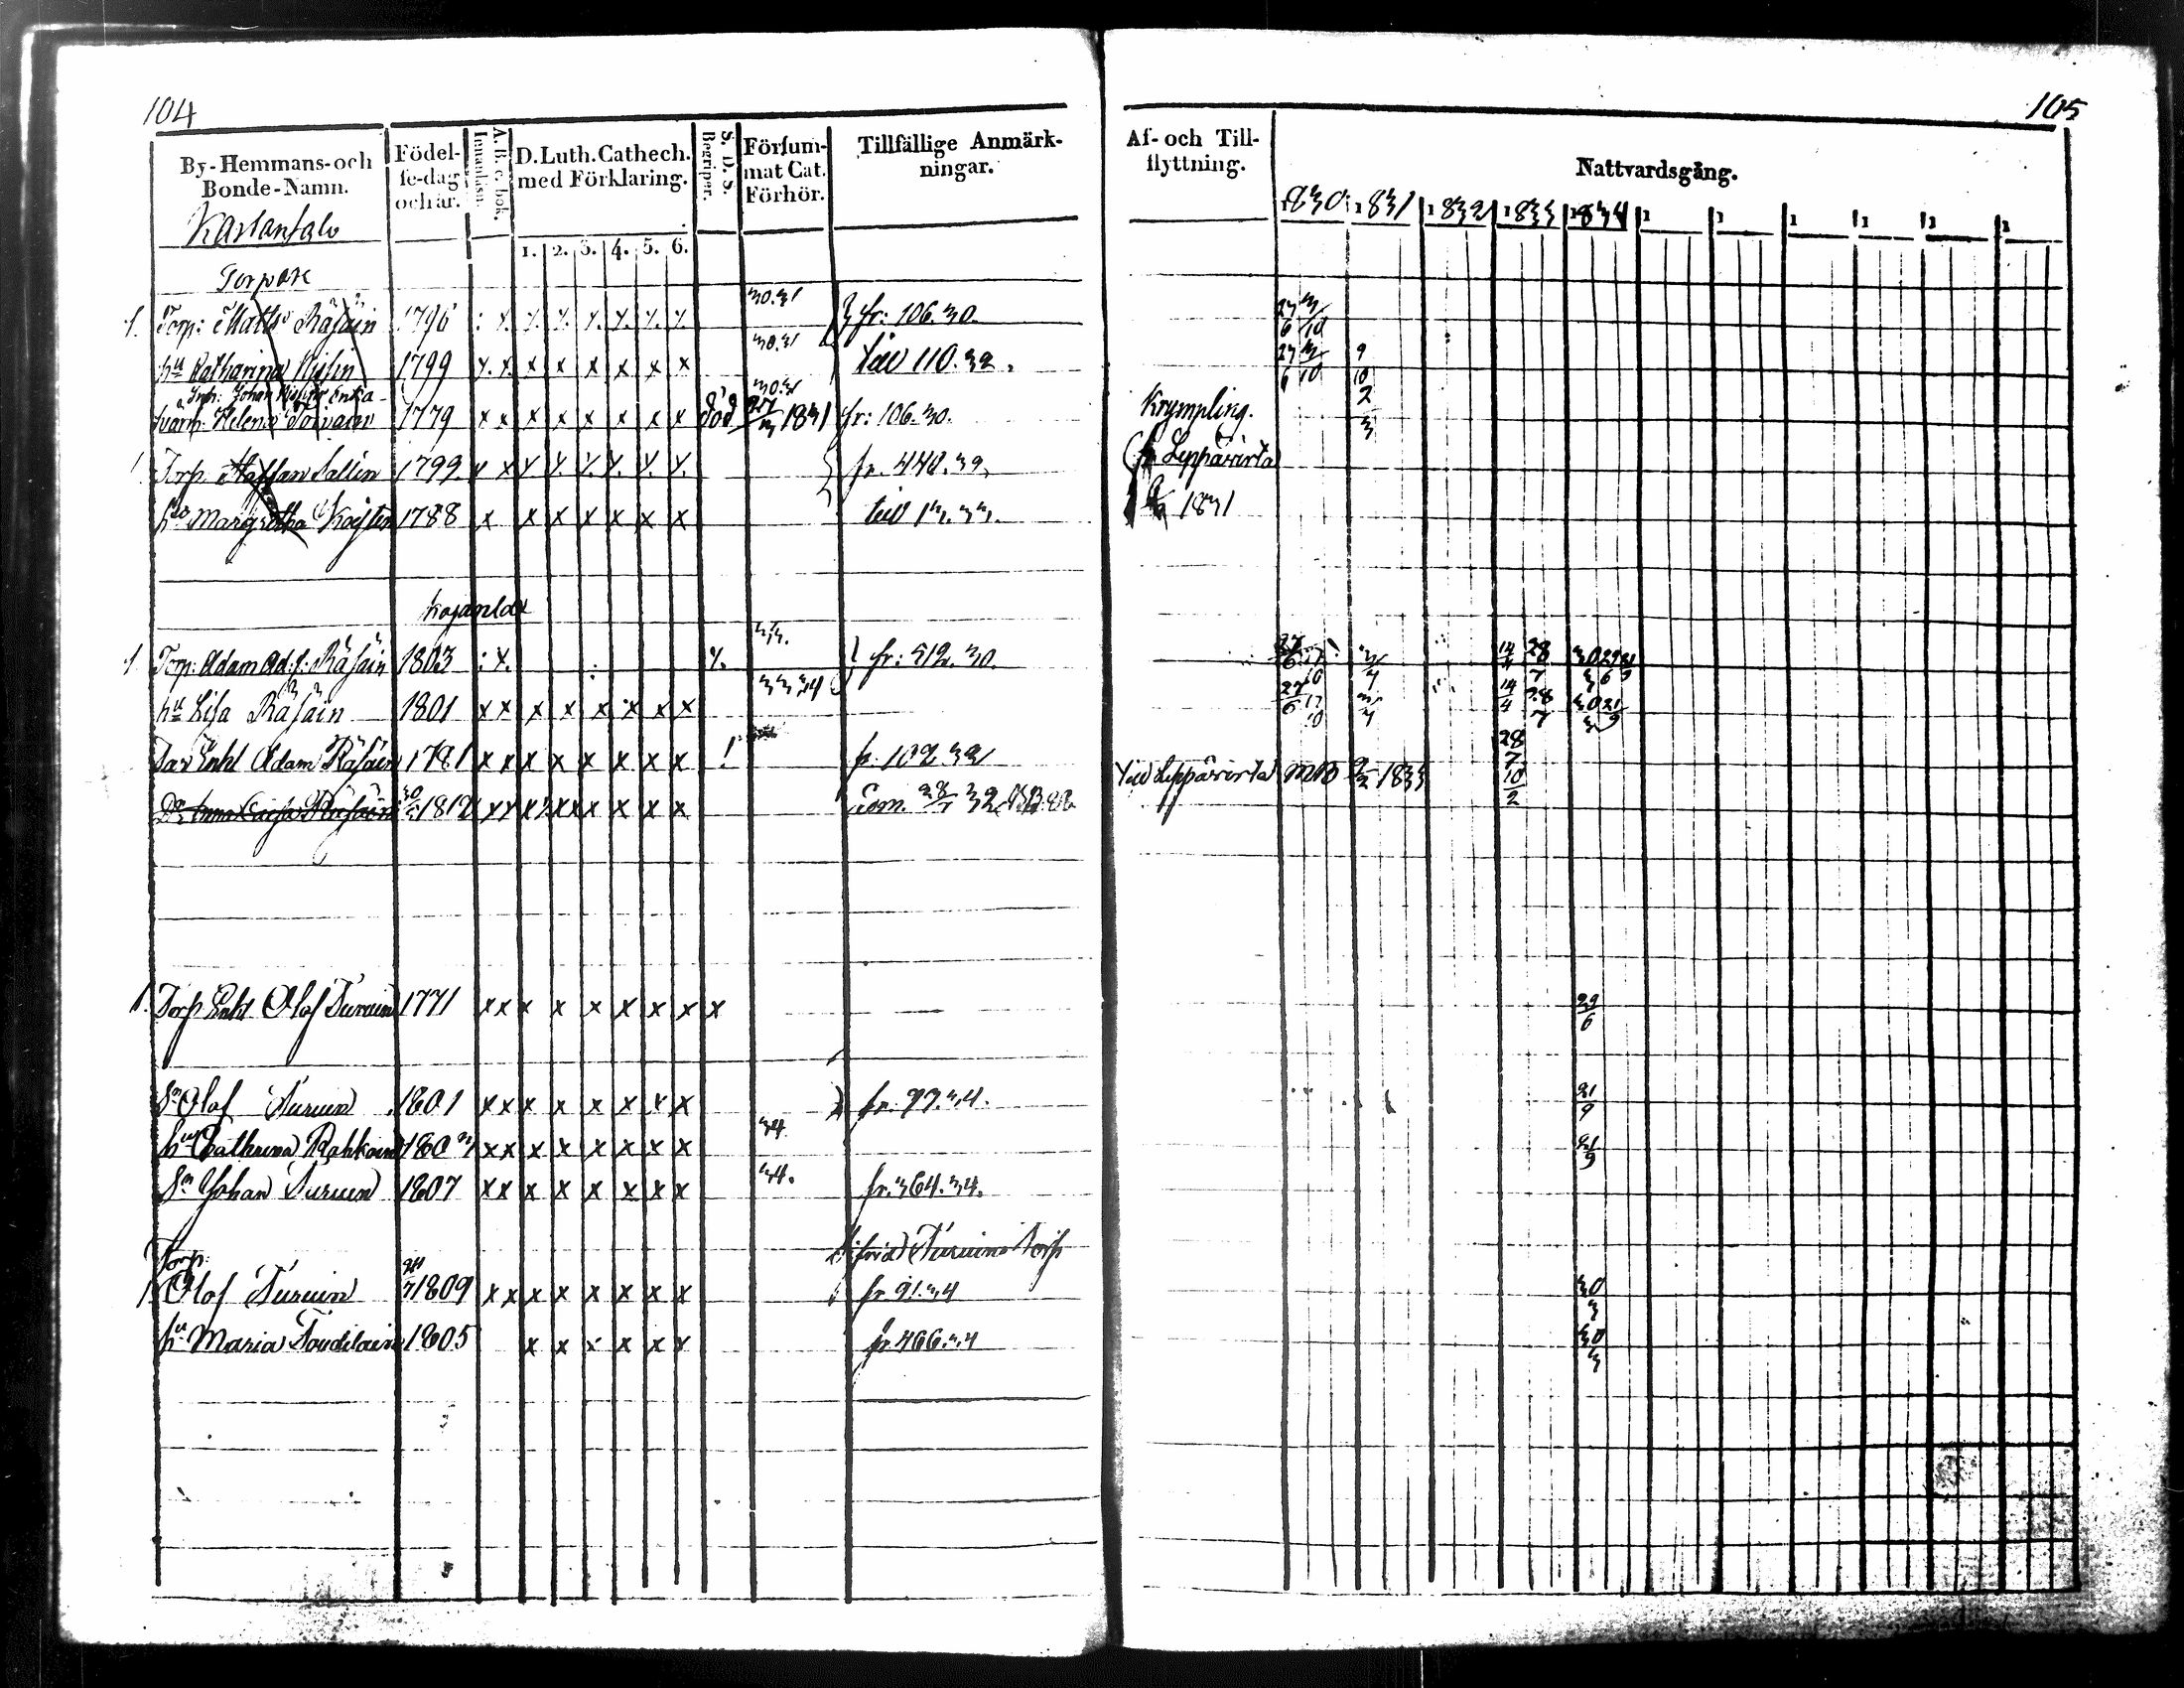 104
105
By-Hemmans-och Bonde-Namn.
Födel-se-dag och år.
A. B. c. bok. Innanläsn.
D. Luth. Cathech. med Förklaring.
1. 2. 3. 4. 5. 6.
S. D. S. Begriper.
Försum-mat Cat. Förhör.
Tillfällige Anmärk-ningar.
Af- och Till-flyttning.
Nattvardsgång.
1830 1831 1832 1833 1834 1 1 1 1 1 1
Torpare
1. Torp: Matts Räsäin 1796 : x. x. x. x. x. x. x. 30.31 fr: 106.30. 27/6 3/10
hu Katharina 1799 x x x x x x x x 30.31 till 110.32. 27/6 3/10 9/10
Inh: Johan Enka
Helena Toivain 1779 x x x x x x x x död 1831 30.31 fr: 106.30. Krympling. 2/3
1 Torp. Staffan Sallin 1799. x x x x. x. x. x. x. fr. 440.32. fr Leppävirta
hu Margretha 1788 x x x x x x x till 13.33. 1831
1. Torp: Adam Ad:s: Räsäin 1803 : x. x. 33. fr: 512.30. 27/6 17/10 3/4 14/4 28/7 30/3 29/6 21/9
hu Lisa Räsäin 1801 x x x x x x x x 33 34 27/6 17/10 3/4 14/4 28/7 30/3 21/9
Enkl Adam Räsäin 1781 x x x x x x x x ! fr 102 32 28/7
Dr Anna Caisa Räsäin 1812 x x x x x x x x 32 till Leppävirta 1833 10/2
1. Torp Enkl Olof Turuin 1771 x x x x x x x x x 29/6
Sn Olof Turuin 1801 x x x x x x x x fr. 97.34. 21/9
hu Cathrina Rahkoin 1803 x x x x x x x x 34 21/9
Sn Johan Turuin 1807 x x x x x x x x 34. fr. 364.34.
Torp:
1. Olof Turuin 1809 x x x x x x x x fr. 91.34 30/3
hu Maria 1805 x x x x x x fr 466.34 30/3